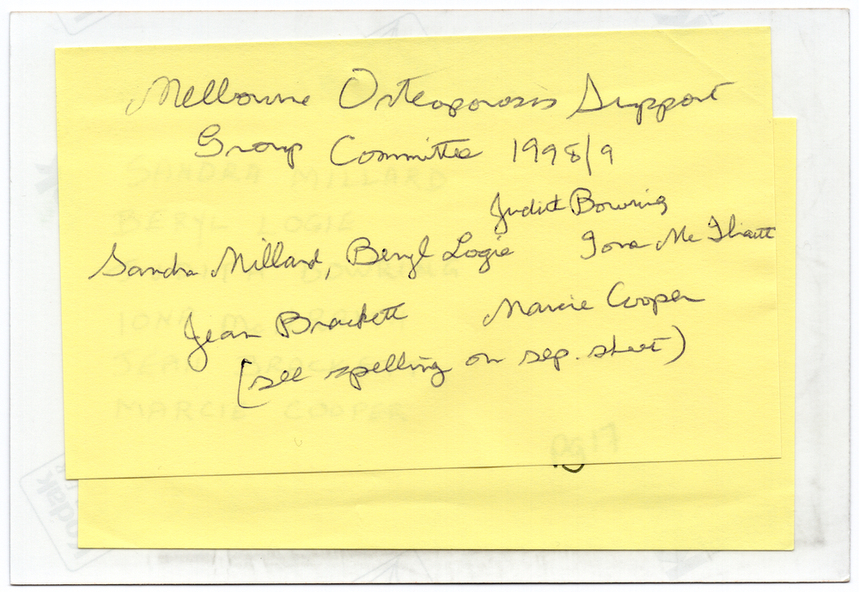 Melbourne Osteoporosis Support
Group Committee 1998/9
Judith Bowring
Sandra Millard, Beryl Logie Iona Mc
Jean Brackett Marcie Cooper
(see spelling on sep. sheet)
SANDRA MILLARD
BERYL LOGIE
BOWRING
IONA Mc
JEAN BRACKETT
MARCIE COOPER
pg 17
Kodak